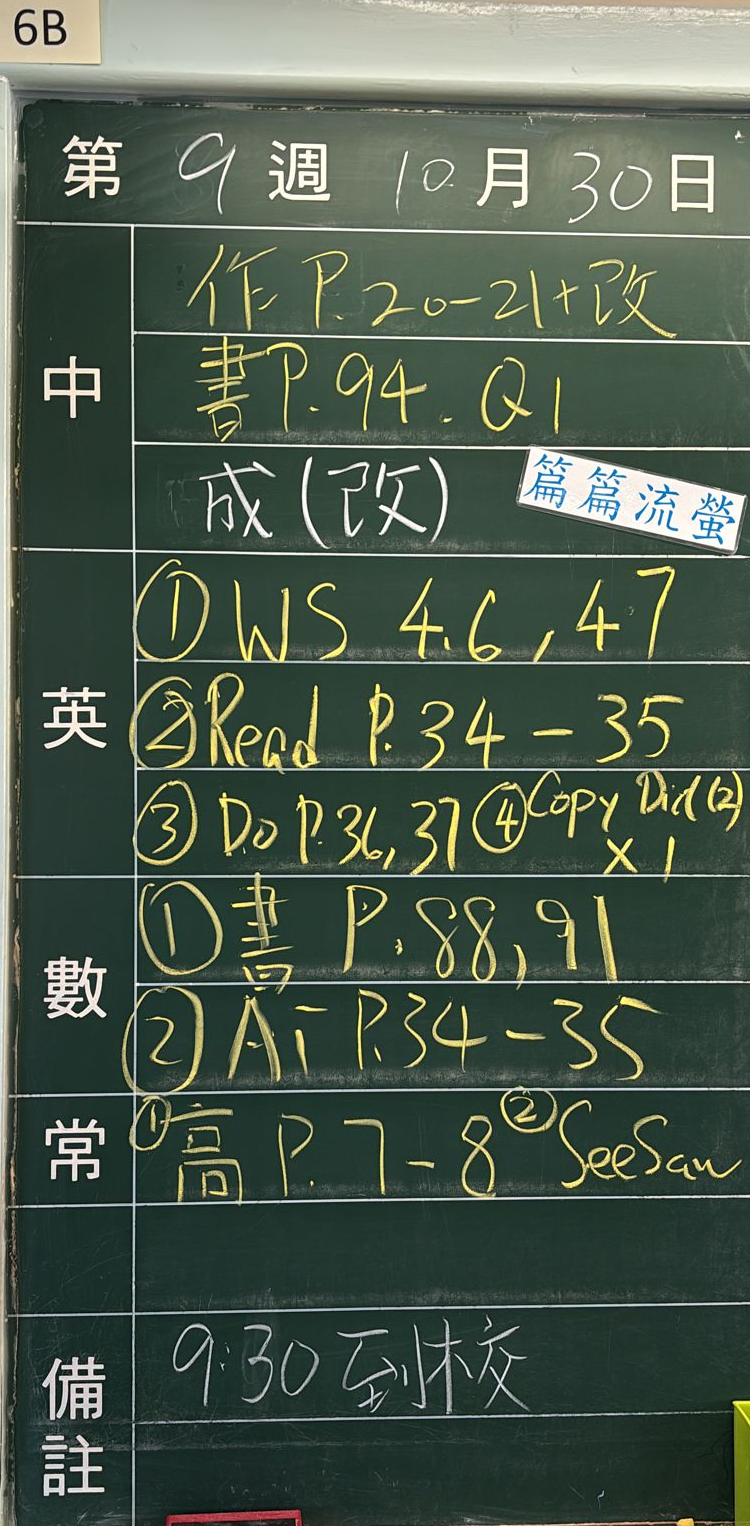 6B
第 9 週 10 月 30 日
中
作 P.20-21+改
書 P.94. Q1
成(改) 篇篇流螢
英
① WS 4.6, 47
② Read P.34-35
③ Do P.36,37 ④ Copy Dict(2) x1
數
① 書 P.88,91
② AT P.34-35
常
① 高 P.7-8 ② SeeSaw
備註
9:30 到校